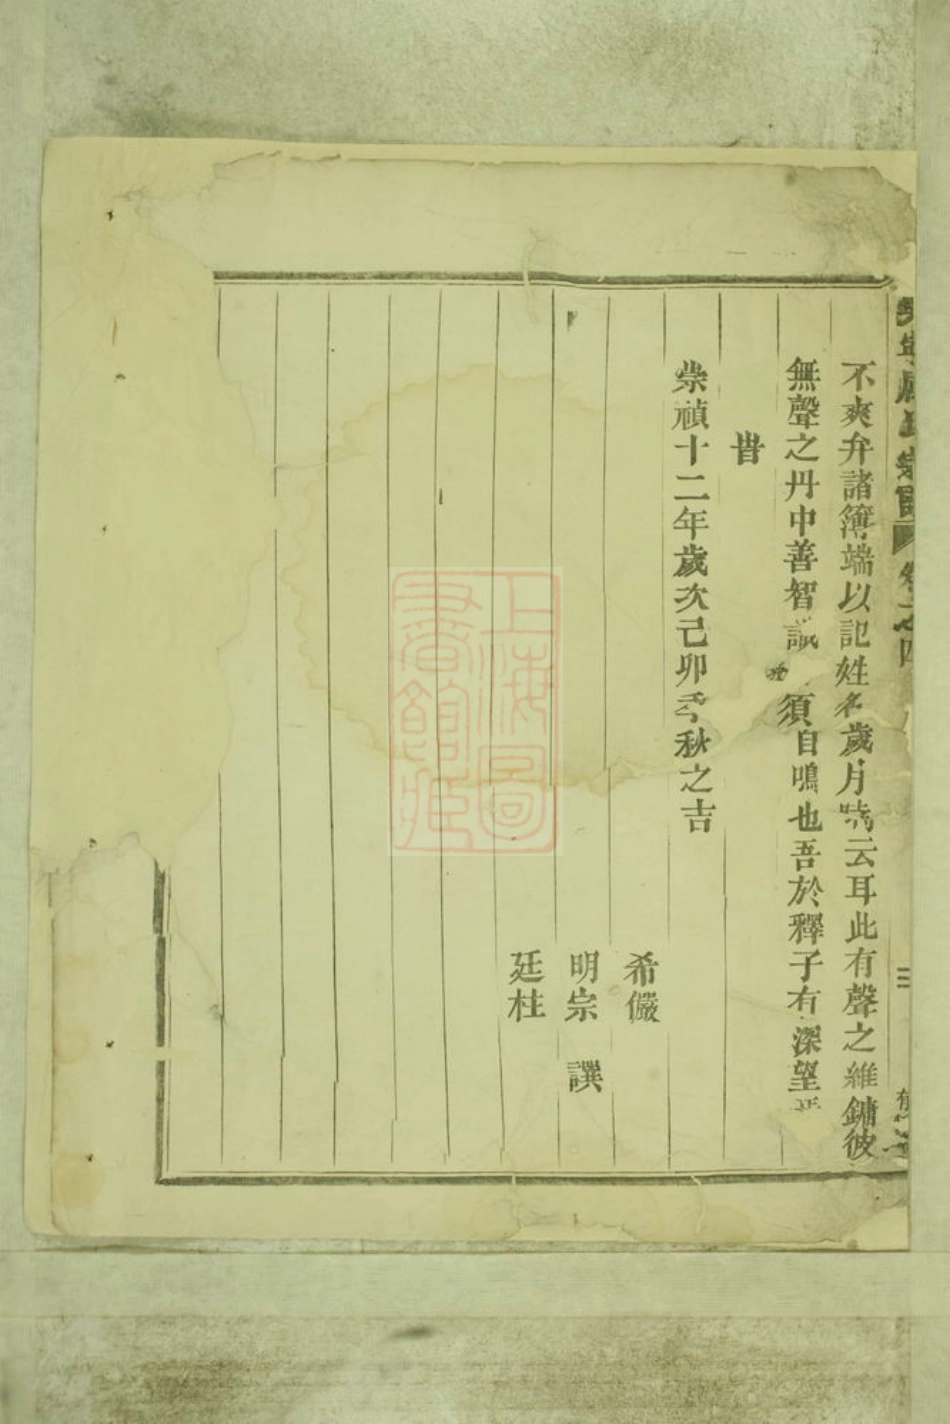 不爽弁諸簿端以記姓名歲月嘵云耳此有聲之維鏞彼
無聲之丹中善智識須自鳴也吾於釋子有深望
旹
崇禎十二年歲次己卯季秋之吉
希儼
明宗 譔
廷柱
卷之四
三
上海圖書館藏